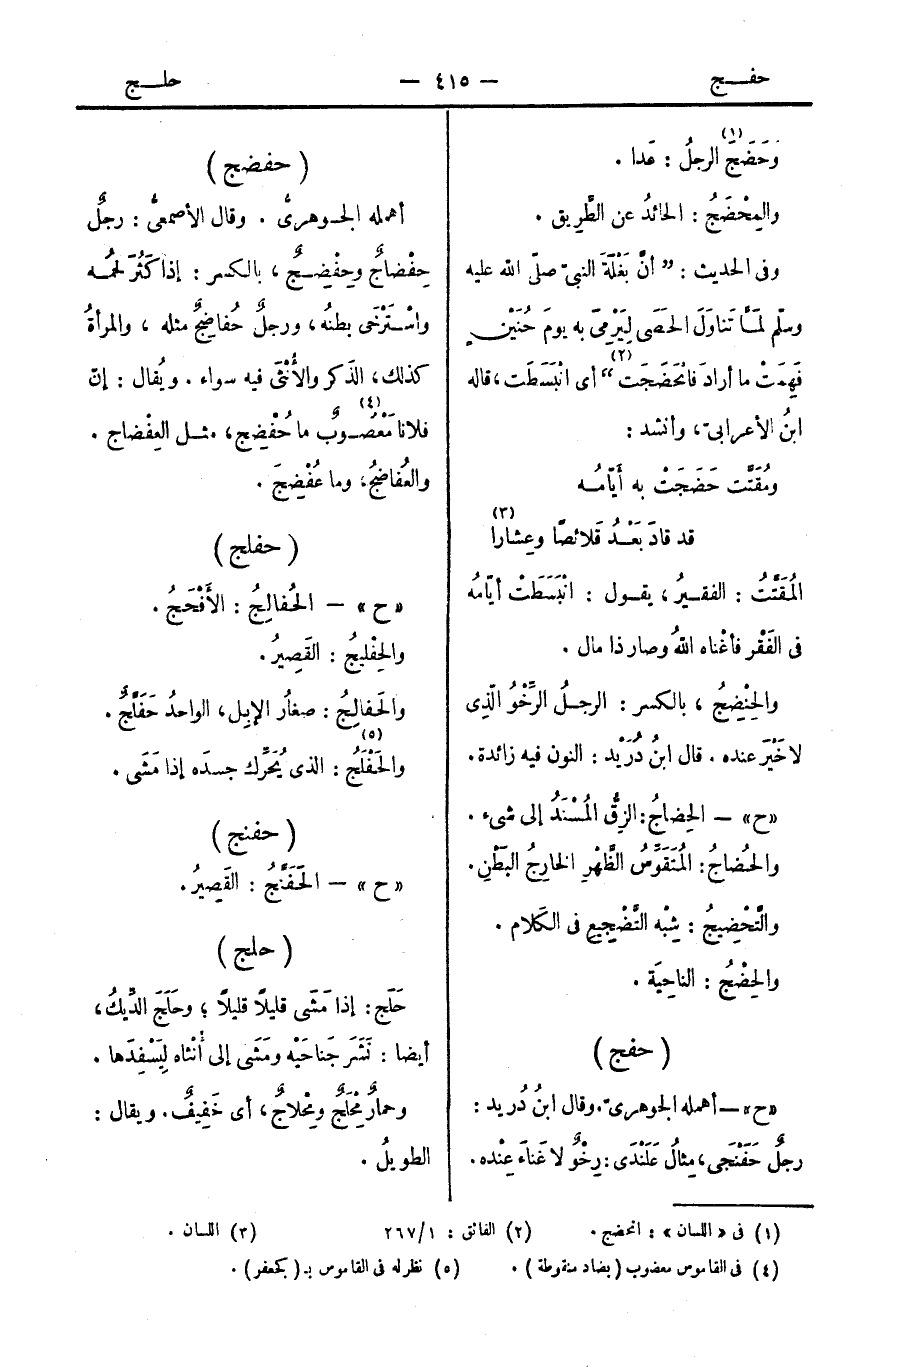 حفـــج
— ٤١٥ —
حلـــج
وَحَضَجَ(١) الرجلُ : عَدا .
والمِحْضَجُ : الحائدُ عن الطَّريق .
وفى الحديث : " أنَّ بَغْلَةَ النبىّ صلّى الله عليه
وسلّم لمَّا تَناوَلَ الحَصَى لِيَرْمِىَ به يومَ حُنَيْنٍ
فَهِمَتْ ما أرادَ فَانْحَضَجَت(٢) " أى انْبَسَطَت ، قاله
ابنُ الأعرابىّ ، وأنشد :
ومُقَتَّت حَضَجَتْ به أَيّامُـه
قد قادَ بَعْـدُ قَلائصًا وعِشارا(٣)
المُقَتَّتُ : الفقـيرُ ، يقـول : انْبَسَطَتْ أيّامُه
فى الفَقْر فأغْناه اللهُ وصار ذا مال .
والحِنْضِجُ ، بالكسر : الرجـلُ الرَّخْوُ الَّذِى
لا خَيْرَ عنده . قال ابنُ دُرَيْد : النون فيه زائدة .
«ح» — الحِضاجُ : الزِقُّ المُسْنَدُ إلى شىء .
والحُضاجُ : المُتَقَوِّسُ الظَّهْرِ الخارِجُ البَطْنِ .
والتَّحْضِيجُ : شِبْه التَّضْجِيعِ فى الكَلام .
والحِضْجُ : الناحِيَة .
( حفج )
«ح» — أهمله الجوهرىّ . وقال ابنُ دُريد :
رجلٌ حَفَنْجَى ، مِثالُ عَلَنْدَى : رِخْوٌ لا غَناءَ عِنْده .
( حفضج )
أهمله الجـوهرىُّ . وقال الأصمعىُّ : رجلٌ
حِفْضاجٌ وحِفْضِـجٌ ، بالكسر : إذا كَثُرَ لحمُـه
واسْـتَرْخَى بطنُه ، ورجلٌ حُفاضِجٌ مثله ، والمرأةُ
كذلك ، الذكر والأُنْثَى فيه سواء . ويُقال : إنّ
فلانا مَعْصُـوبٌ(٤) ما حُفْضِج ، مثـل العِفْضاج .
والعُفاضِجُ ، وما عُفْضِجَ .
( حفلج )
«ح» — الحُفالِجُ : الأَفْحَجُ .
والحِفْلِيجُ : القَصِيرُ .
والحَفالِجُ : صغارُ الإبِل ، الواحدُ حَفَلَّجٌ .
والحَفْلَجُ(٥) : الذى يُحَرِّك جسدَه إذا مَشَى .
( حفنج )
«ح» — الحَفَنَّجُ : القَصِيرُ .
( حلج )
حَلَج : إذا مَشَى قليلًا قليلًا ؛ وحَلَجَ الدِّيكُ ،
أيضا : نَشَرَ جَناحَيْه ومَشَى إلى أُنْثاه لِيَسْفِدَها .
وحمارٌ مِحْلَجٌ ومِحْلاجٌ ، أى خَفِيفٌ . ويقال :
الطويلُ .
(١) فى « اللسان » : انحضج . (٢) الفائق : ١/٢٦٧ (٣) اللسان .
(٤) فى القاموس معضوب ( بضاد منقوطة ) . (٥) نظرله فى القاموس بـ( كجعفر ) .